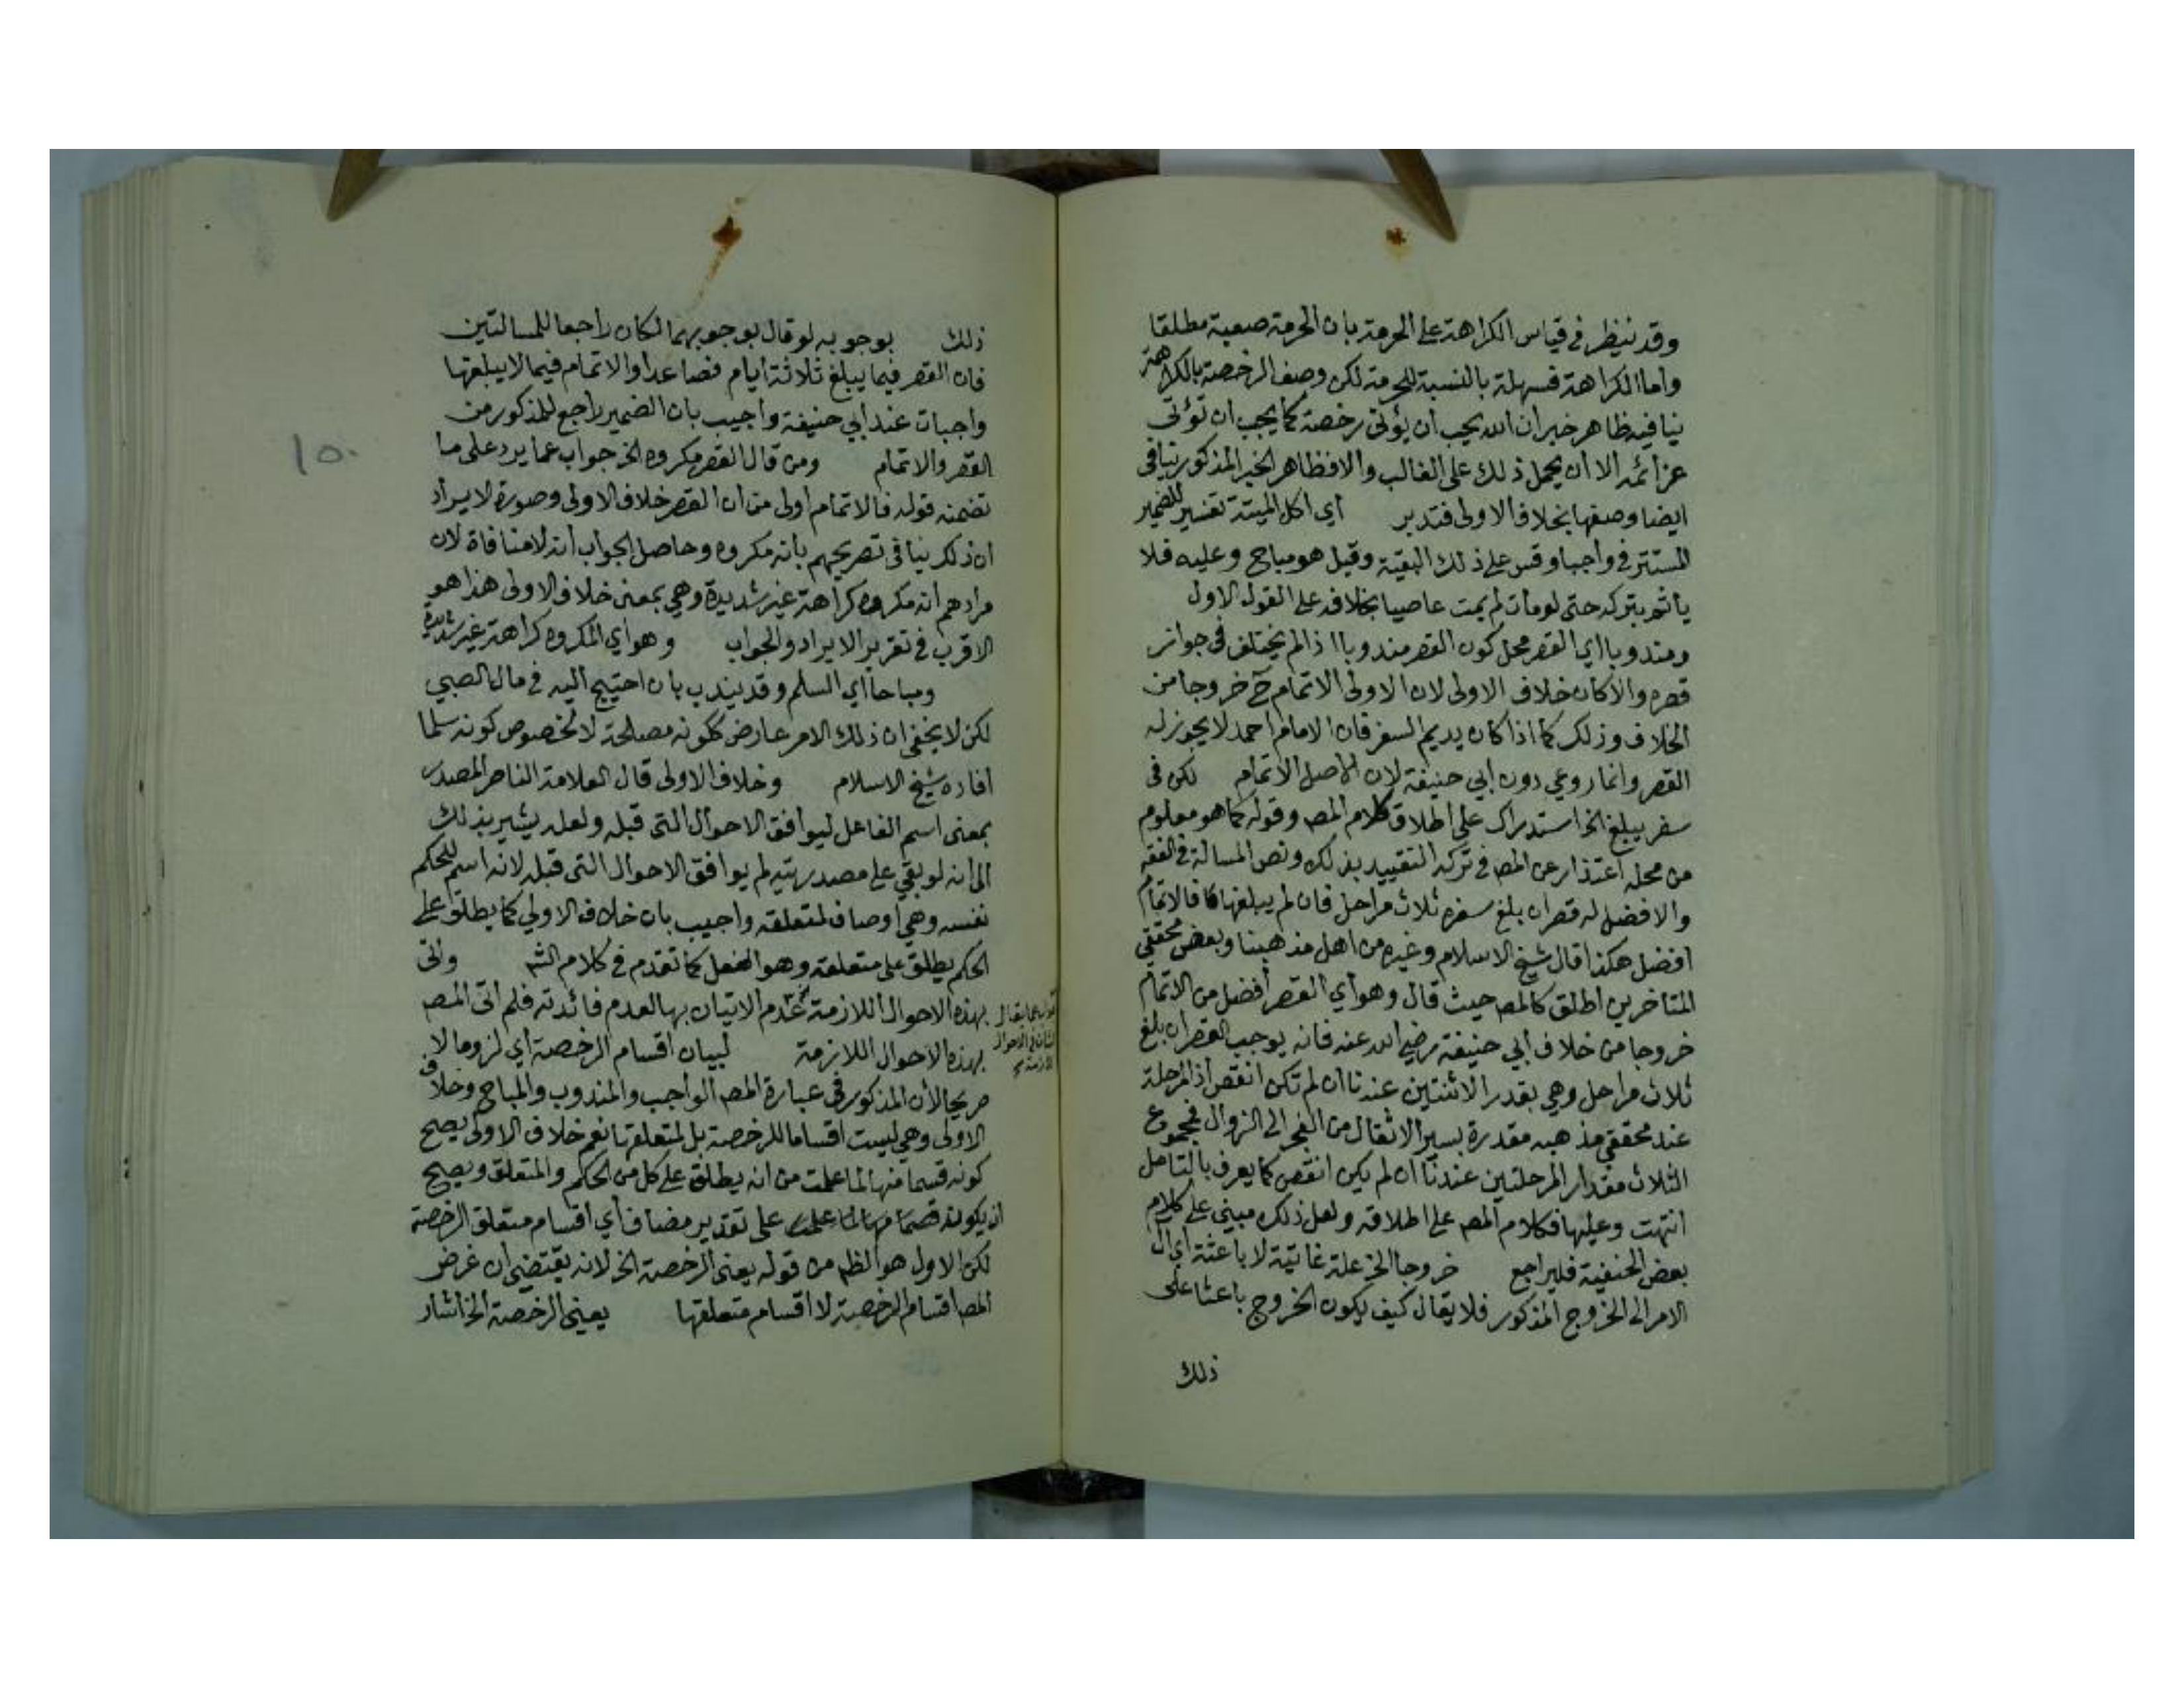 وقد ينظر في قياس الكراهة على الحرمة بان الحرمة صعبة مطلقا
واما الكراهة فسهلة بالنسبة للحرمة لكن وصف الرخصة بالكراهة
ينافيه ظاهر خبر ان الله يحب ان يؤتى رخصه كما يحب ان تؤتى
عزائمه الا ان يحمل ذلك على الغالب والا فظاهر الخبر المذكور ينافى
ايضا وصفها بخلاف الاولى فتدبر اي اكل الميتة تفسير للضمير
المستتر في واجبا وقس على ذلك البقية وقيل هو مباح وعليه فلا
يأثم بتركه حتى لو مات لم يمت عاصيا بخلافه على القول الاول
ومندوبا اي القصر محل كون القصر مندوبا اذا لم يختلف فى جواز
قصره والا كان خلاف الاولى لان الاولى الاتمام ح خروجا من
الخلاف وذلك كما اذا كان يديم السفر فان الامام احمد لا يجوز له
القصر وانما روعي دون ابي حنيفة لان الاصل الاتمام لكن فى
سفر يبلغ الخ استدراك على اطلاق كلام المصـ وقوله كما هو معلوم
من محله اعتذار عن المصـ في تركه التقييد بذلك ونص المسالة في الفقه
والافضل له قصر ان بلغ سفره ثلاث مراحل فان لم يبلغها فالاتمام
افضل هكذا قال شيخ الاسلام وغيره من اهل مذهبنا وبعض محققي
المتاخرين اطلق كالمصـ حيث قال وهو أي القصر أفضل من الاتمام
خروجا من خلاف أبي حنيفة رضي الله عنه فانه يوجب القصر ان بلغ
ثلاث مراحل وهي بقدر الاثنتين عندنا ان لم تكن انقص اذ المرحلة
عند محققي مذهبه مقدرة بسير الاثقال من الفجر الى الزوال فمجموع
الثلاث مقدار المرحلتين عندنا ان لم يكن انقص كما يعرف بالتامل
انتهت وعليها فكلام المصـ على اطلاقه ولعل ذلك مبني على كلام
بعض الحنفية فليراجع خروجا الخ علة غائية لا باعثة اي آل
الامر الى الخروج المذكور فلا يقال كيف يكون الخروج باعثا على
ذلك
ذلك بوجوبه لو قال بوجوبهما لكان راجعا للمسالتين
فان القصر فيما يبلغ ثلاثة ايام فصاعدا والاتمام فيما لا يبلغها
واجبات عند ابي حنيفة واجيب بان الضمير راجع للمذكور من
القصر والاتمام ومن قال القصر مكروه الخ جواب عما يرد على ما
١٥٠
تضمنه قوله فالاتمام اولى من ان القصر خلاف الاولى وصورة الايراد
ان ذلك ينافى تصريحهم بانه مكروه وحاصل الجواب انه لا منافاة لان
مرادهم انه مكروه كراهة غير شديدة وهي بمعنى خلاف الاولى هذا هو
الاقرب في تقرير الايراد والجواب وهو اي المكروه كراهة غير شديدة
ومباحا اي السلم وقد يندب بان احتيج اليه في مال الصبي
لكن لا يخفى ان ذلك الامر عارض ككونه مصلحة لا لخصوص كونه سلما
افاده شيخ الاسلام وخلاف الاولى قال العلامة الناصر المصدر
بمعنى اسم الفاعل ليوافق الاحوال التى قبله ولعله يشير بذلك
الى انه لو بقي على مصدريته لم يوافق الاحوال التى قبله لانه اسم للحكم
نفسه وهي أوصاف لمتعلقه واجيب بان خلاف الاولي كما يطلق على
الحكم يطلق على متعلقه وهو الفعل كما تقدم في كلام الشـ واتى
بهذه الاحوال اللازمة عدم الاتيان بها لعدم فائدته فلم اتى المصـ
بهذه الاحوال اللازمة لبيان اقسام الرخصة اي لزوما لا
صريحا لأن المذكور فى عبارة المصـ الواجب والمندوب والمباح وخلاف
الاولى وهي ليست اقساما للرخصة بل لمتعلقها نعم خلاف الاولى يصح
كونه قسما منها لما علمت من انه يطلق على كل من الحكم والمتعلق ويصح
ان يكون على تقدير مضاف أي اقسام متعلق الرخصة
لكن الاول هو الظـ من قوله يعني الرخصة الخ لانه يقتضي ان غرض
المصـ اقسام الرخصة لا اقسام متعلقها يعني الرخصة الخ اشار